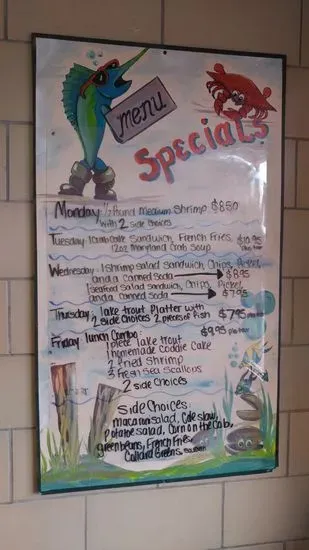 menu
Specials
Monday: 1/2 Pound Medium Shrimp $8.50
with 2 side choices
Tuesday: 1 Crab Cake Sandwich, French Fries, $10.95
12oz Maryland Crab Soup plus tax
Wednesday: 1 Shrimp salad sandwich, Chips, Pickel,
and a canned soda $8.95
1 seafood salad sandwich, Chips, Pickel
and a canned soda $7.95
Thursday: lake trout Platter with
2 side choices 2 pieces of fish $7.95 plus tax
Friday: lunch Combo: $9.95 plus tax
1 piece lake trout
1 homemade coddie Cake
2 Fried Shrimp
3 Fresh Sea Scallops
2 side choices
side Choices:
macaroni salad, Cole slaw,
Potatoe salad, Corn on the Cob,
green beans, French Fries,
Collard Greens,